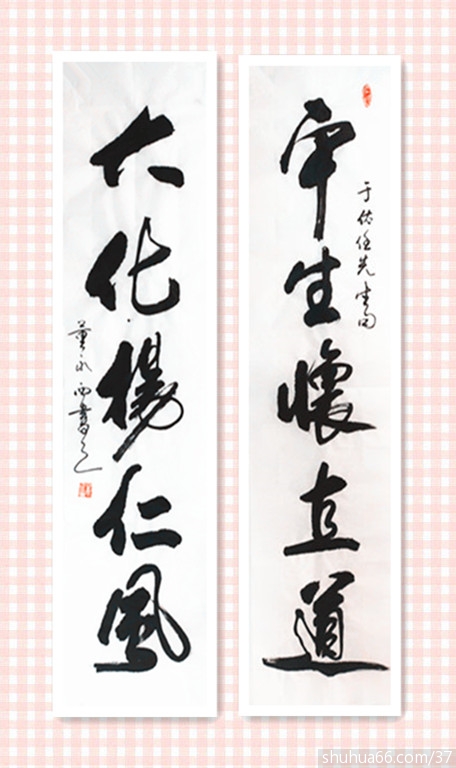 平生懷直道
于佑任先生句
大化揚仁風
董永西書之
shuhua66.com/37